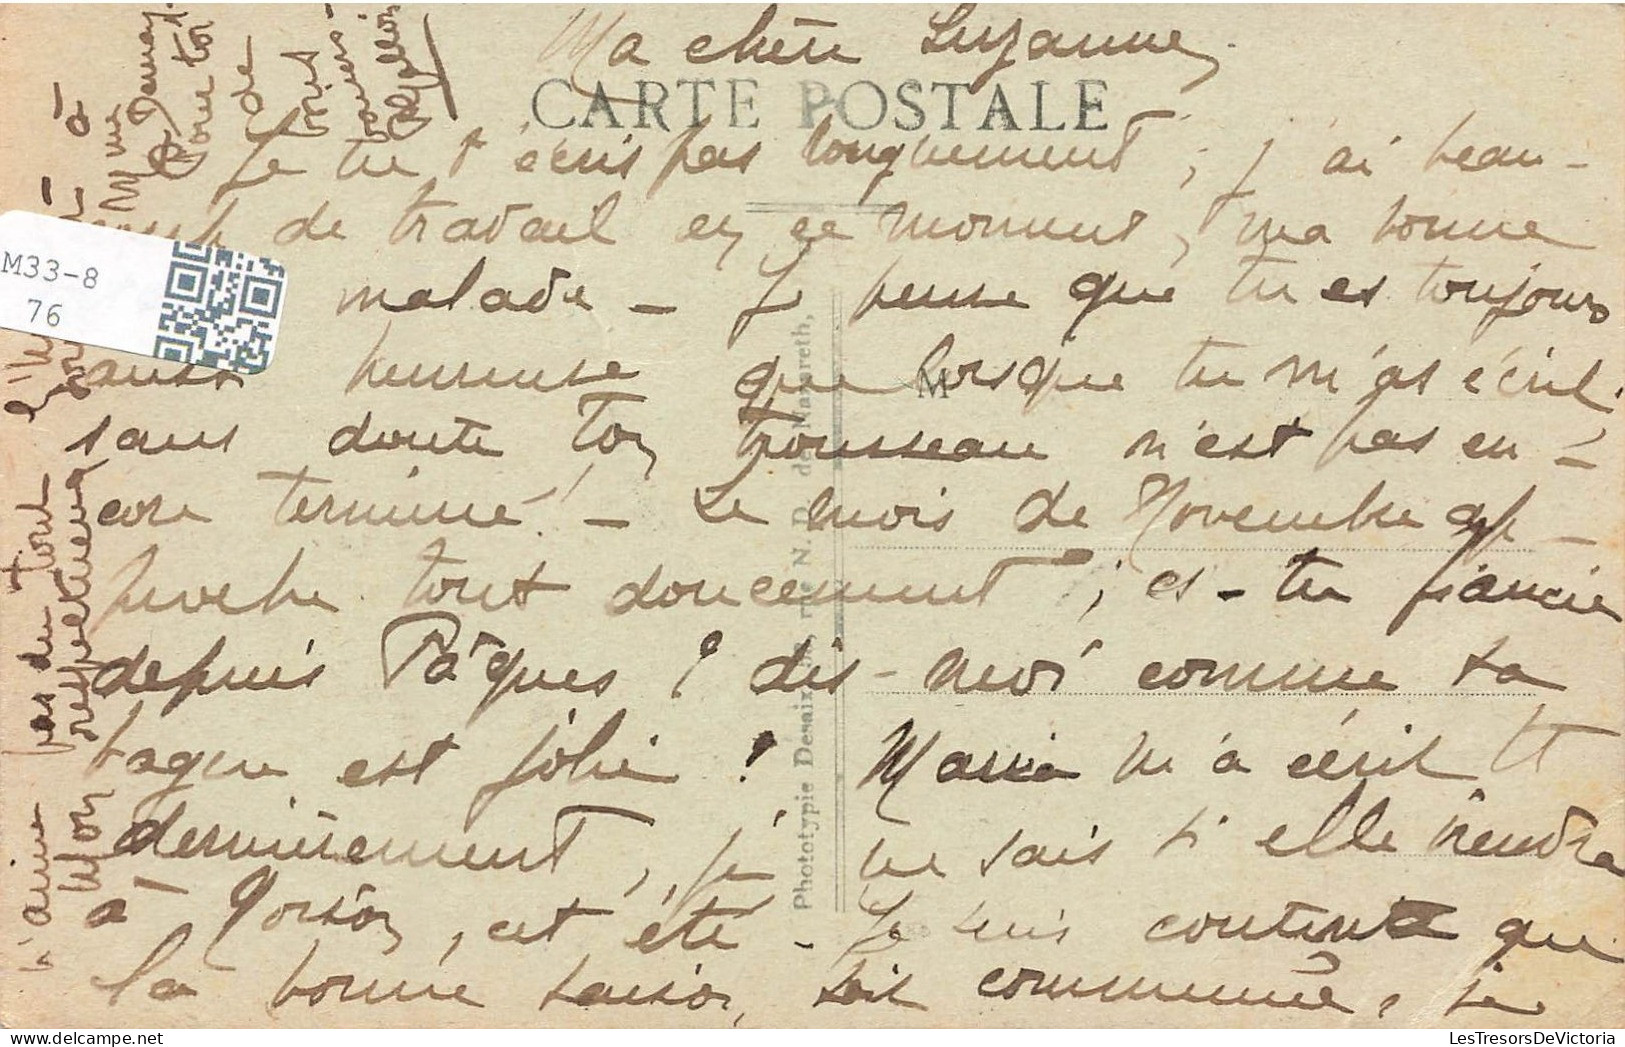 Ma chère Suzanne,
CARTE POSTALE
Je ne t'écris pas longuement ; j'ai beau-
coup de travail en ce moment, ma bonne
malade - Je pense que tu es toujours
aussi heureuse que lorsque tu m'as écrit.
sans doute ton trousseau n'est pas en-
core terminé ! - Le mois de Novembre ap-
proche tout doucement ; es-tu fiancée
depuis Pâques ? dis-moi comme ta
bague est jolie ! Maria m'a écrit tt
dernièrement, je ne sais si elle viendra
à, cet été - Je suis contente que
la bonne saison, soit commencée, je
n'aime pas du tout l'hiver
Mon respectueux
à
pour toi
de
Phototypie Desaix, rue N. D. de Nazareth,
M
M33-8
76
LesTresorsDeVictoria